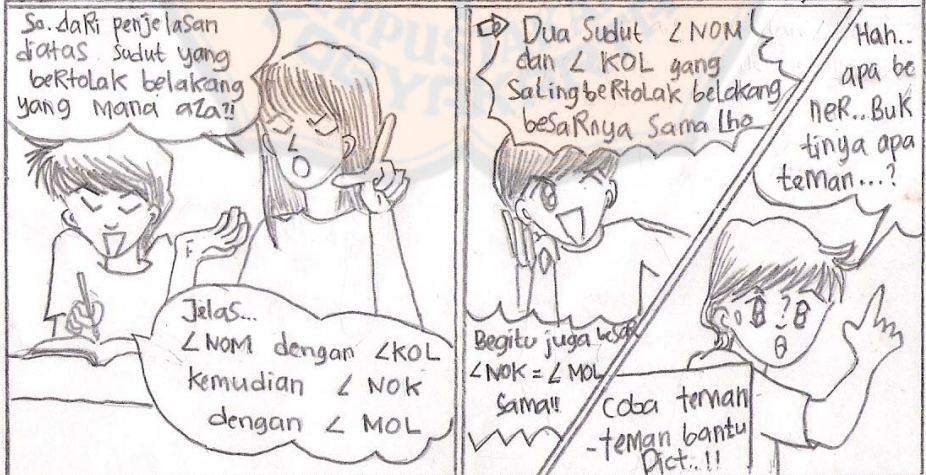 So.daRi penjelasan
diatas sudut yang
beRtolak belakang
yang mana aza?!
Jelas...
∠NOM dengan ∠KOL
kemudian ∠ NOK
dengan ∠ MOL
Dua Sudut ∠NOM
dan ∠ KOL yang
SalingbeRtolak belakang
besaRnya Sama Lho
Begitu juga besaR
∠NOK = ∠ MOL
Sama!!
Hah..
apa be
neR..Buk
tinya apa
teman...?
coba teman
-teman bantu
Dict..!!